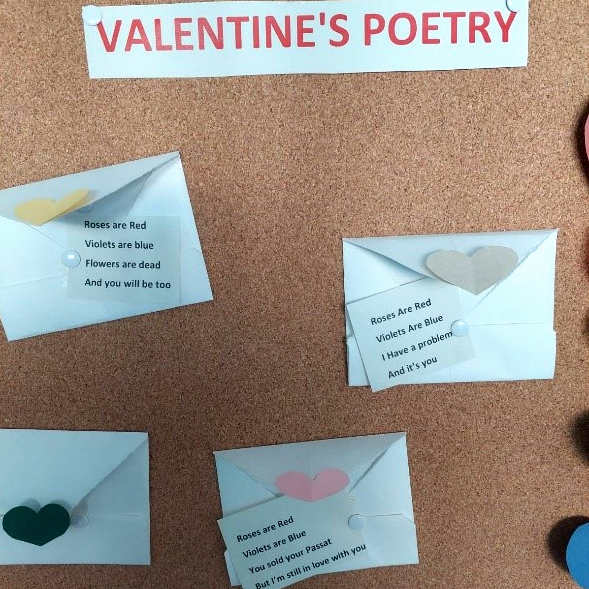 VALENTINE'S POETRY
Roses are Red
Violets are blue
Flowers are dead
And you will be too
Roses Are Red
Violets Are Blue
I Have a problem
And it's you
Roses are Red
Violets are Blue
You sold your Passat
But I'm still in love with you